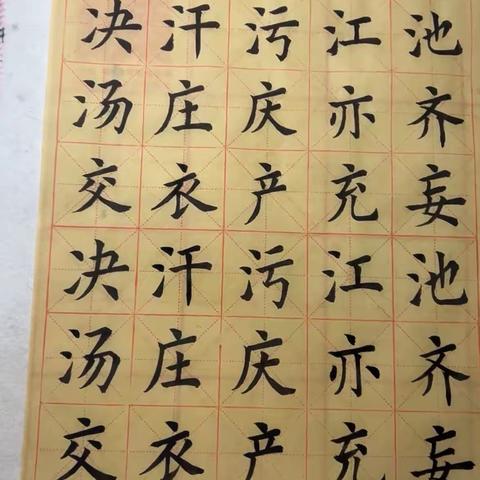 决汗污江池
汤庄庆亦齐
交衣产充妄
决汗污江池
汤庄庆亦齐
交衣产充妄